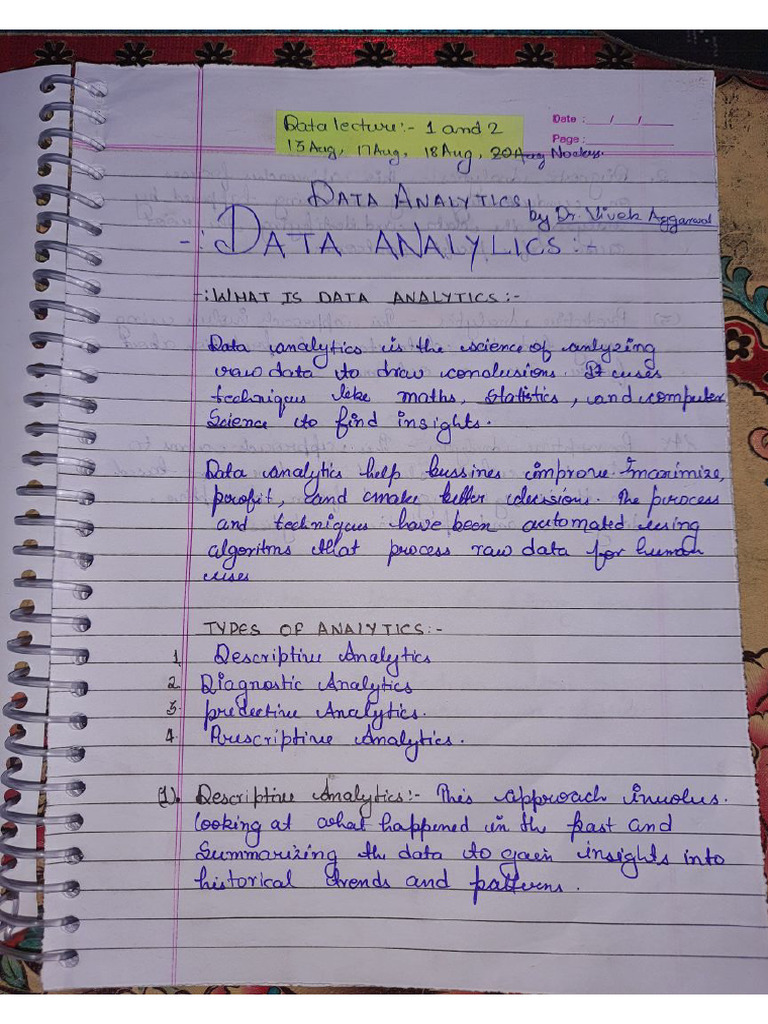 Data lecture:- 1 and 2
Date : __/__/__
15 Aug, 17 Aug, 18 Aug, 20 Aug
Page :
DATA ANALYTICS
by Dr. Vivek Aggarwal
-: DATA ANALYLICS :-
-: WHAT IS DATA ANALYTICS:-
Data analytics is the science of anlyzing
raw data to draw conclusions. It uses
techniques like maths, statistics, and computer
Science to find insights.
Data analytics help bussines improve. Imaximize,
profit, and make better decisions. The process
and techniques have been automated using
algoritms that process raw data for human
uses
TYPES OF ANALYTICS:-
1. Descriptive Analytics
2. Diagnostic Analytics
3. predective Analytics.
4. Prescriptive Analytics.
(1). Descriptive Analytics:- This approach involves.
looking at what happened in the past and
Summarizing the data to gain insights into
historical trends and patterns.